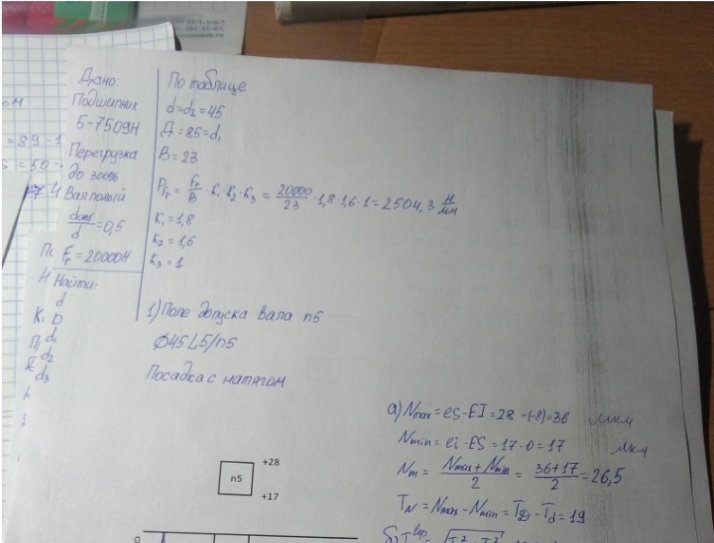 Дано:
Подшипник
5-7509Н
Перегрузка
до 300%
Вал полый
dотв/d = 0,5
Fr = 20000Н
Найти:
d
D
d1
d2
d3
По таблице
d = d2 = 45
Д = 85 = d1
B = 23
PFr = Fr/B · K1 · K2 · K3 = 20000/23 · 1,8 · 1,6 · 1 = 2504,3 Н/мм
K1 = 1,8
K2 = 1,6
K3 = 1
1) Поле допуска вала n5
Ø45 L5/n5
Посадка с натягом
а) Nmax = es - EI = 28 - (-8) = 36 мкм
Nmin = ei - ES = 17 - 0 = 17 мкм
Nm = (Nmax + Nmin)/2 = (36 + 17)/2 = 26,5
TN = Nmax - Nmin = TD - Td = 19
n5
+28
+17
0